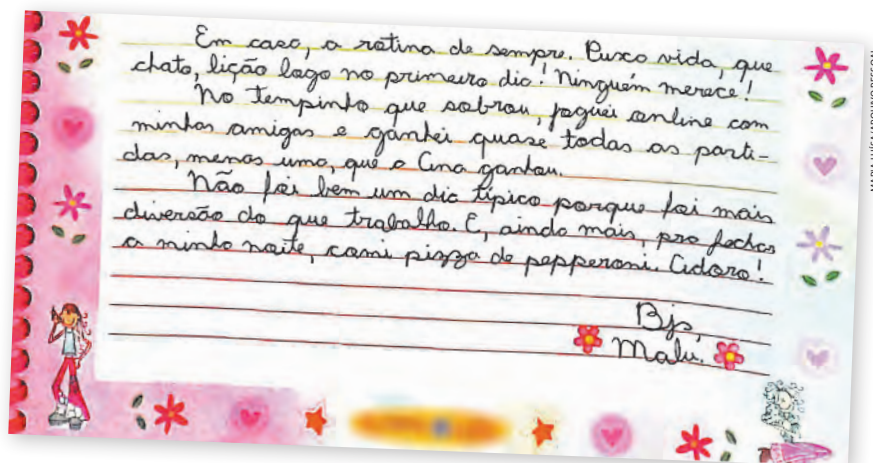 Em casa, a rotina de sempre. Puxa vida, que
chato, lição logo no primeiro dia! Ninguém merece!
No tempinho que sobrou, joguei online com
minhas amigas e ganhei quase todas as parti-
das, menos uma, que a Ana ganhou.
Não foi bem um dia típico porque foi mais
diversão do que trabalho. E, ainda mais, pra fechar
a minha noite, comi pizza de pepperoni. Adoro!
Bjs,
Malu.
MARIA LUÍSA/ARQUIVO PESSOAL